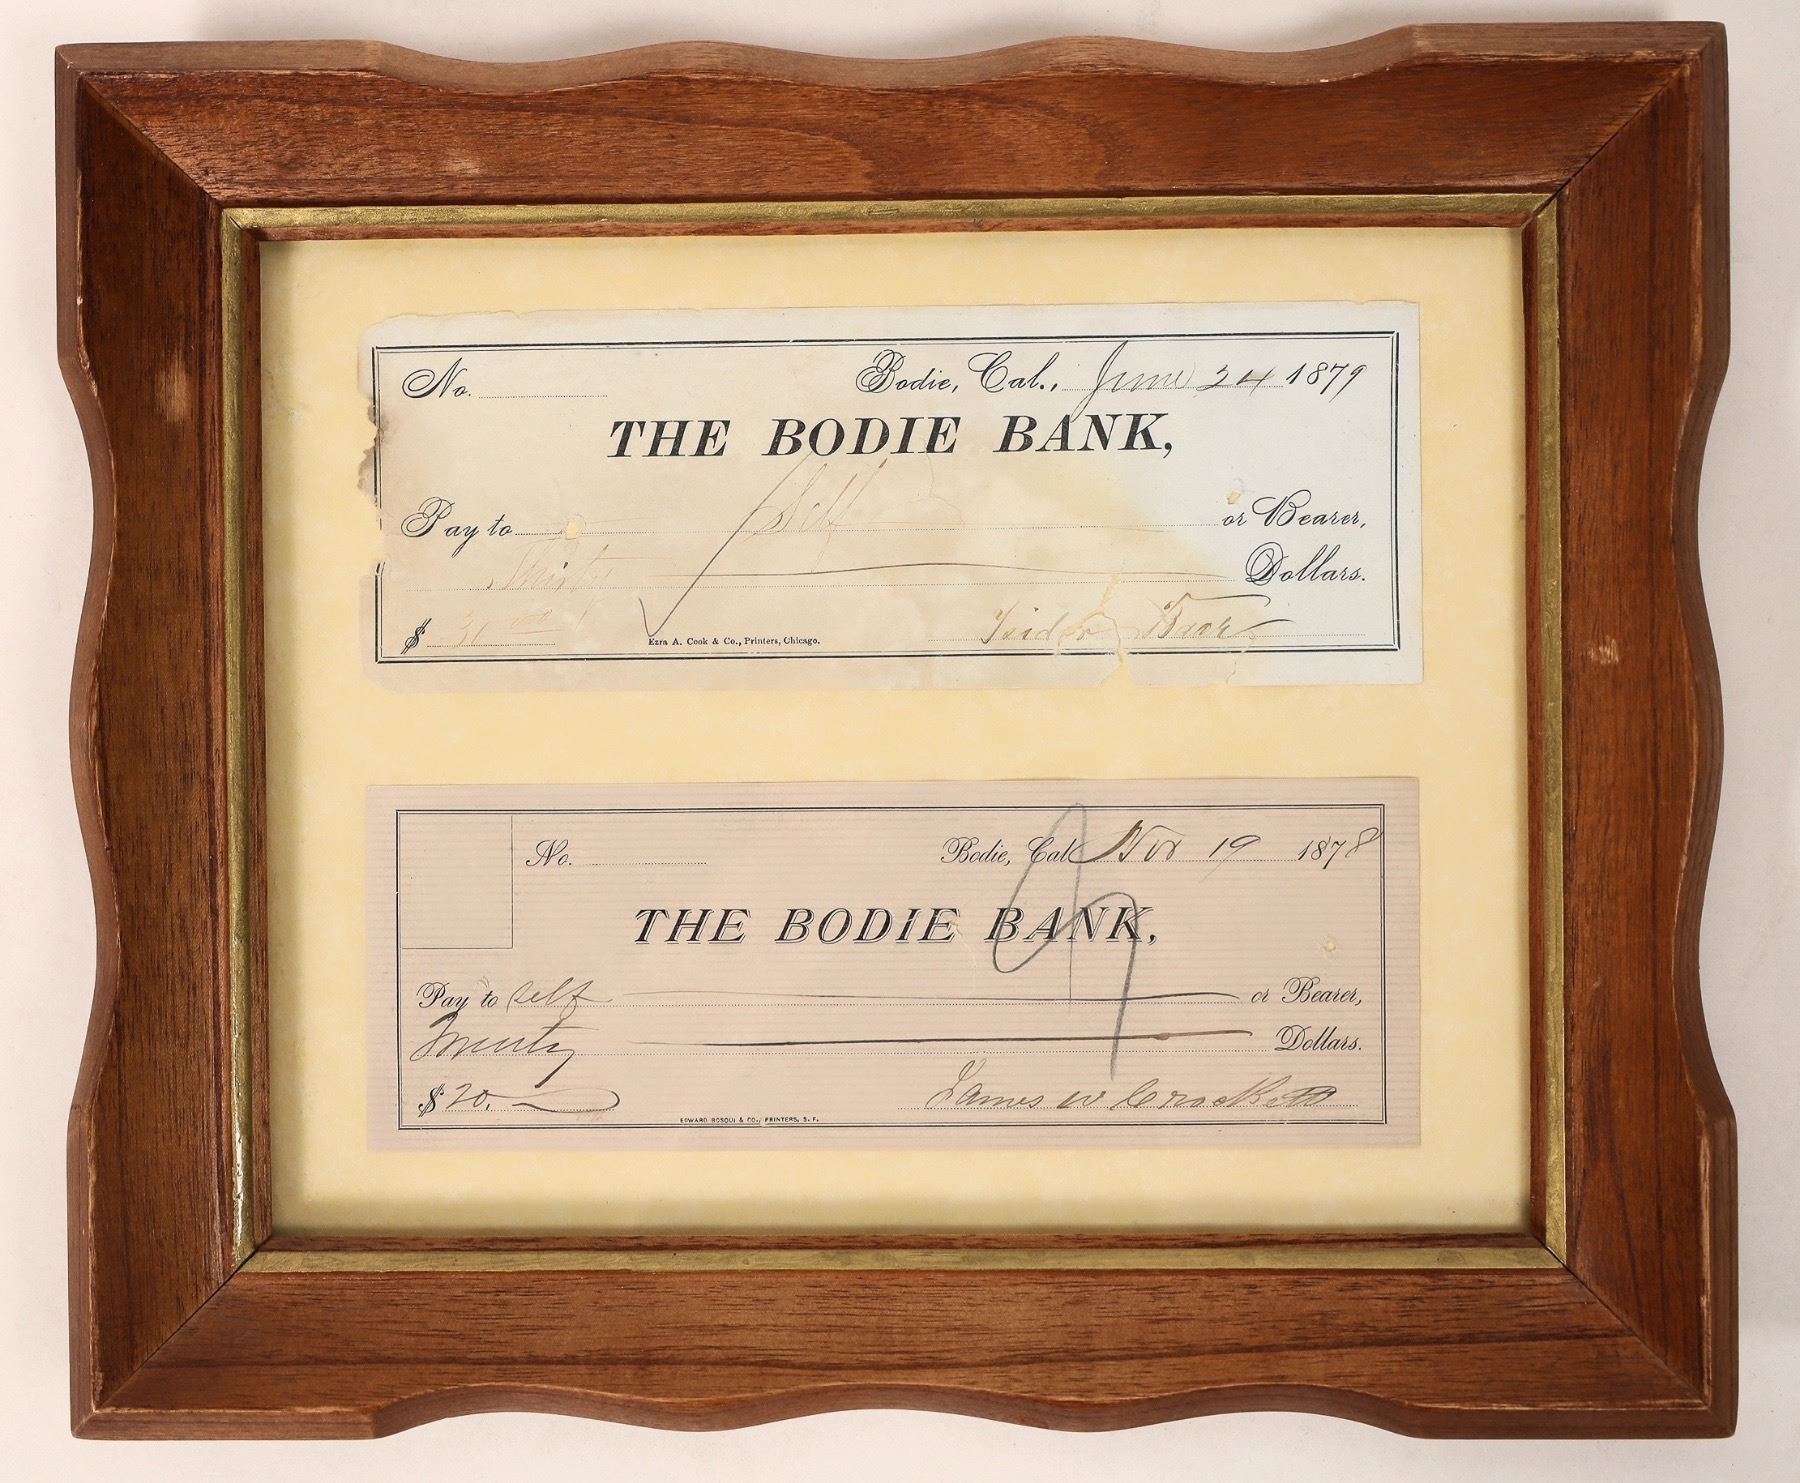 No. Bodie, Cal., June 24 1879
THE BODIE BANK,
Pay to Self or Bearer,
Thirty Dollars.
$ 30 00 Isidor
Ezra A. Cook & Co., Printers, Chicago.
No. Bodie, Cal Nov 19 1878
THE BODIE BANK,
Pay to self or Bearer,
Twenty Dollars.
$ 20. James W Crockett
EDWARD BOSQUI & CO., PRINTERS, S. F.